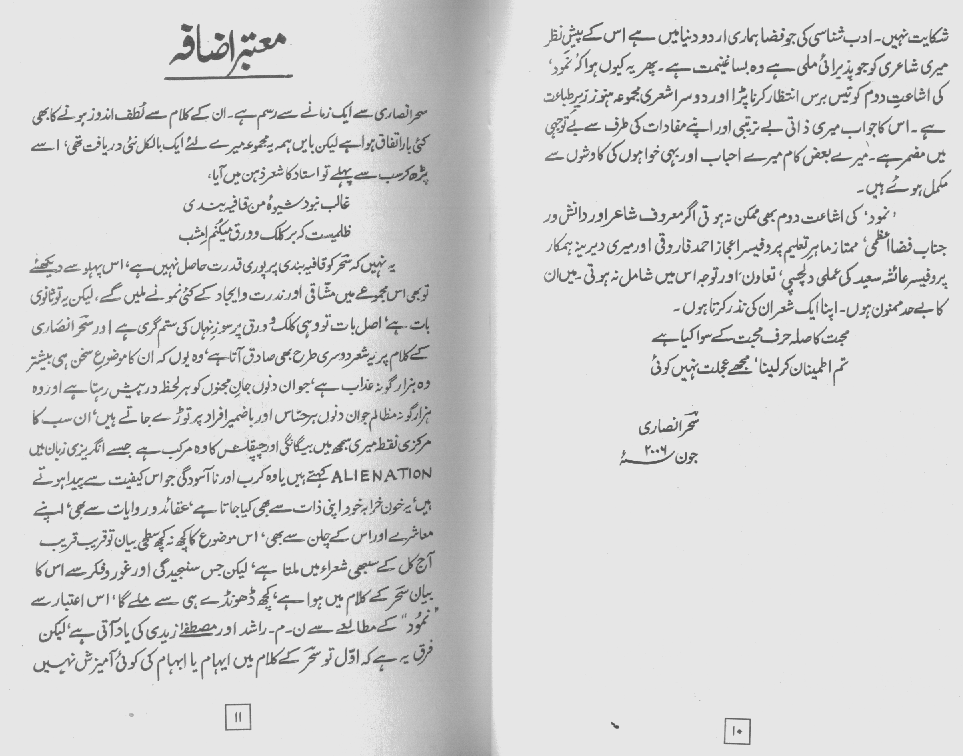 شکایت نہیں۔ ادب شناسی کی جو فضا ہماری اردو دنیا میں ہے اس کے پیش نظر
میری شاعری کو جو پذیرائی ملی ہے وہ بسا غنیمت ہے۔ پھر یہ کیوں ہوا کہ 'نمود'
کی اشاعتِ دوم کو تیس برس انتظار کرنا پڑا اور دوسرا شعری مجموعہ ہنوز زیرِ طباعت
ہے۔ اس کا جواب میری ذاتی بے ترتیبی اور اپنے مفادات کی طرف سے بے توجہی
میں مضمر ہے۔ میرے بعض کام میرے احباب اور بہی خواہوں کی کاوشوں سے
مکمل ہوئے ہیں۔
'نمود' کی اشاعت دوم بھی ممکن نہ ہوتی اگر معروف شاعر اور دانش ور
جناب فضا اعظمی' ممتاز ماہرِ تعلیم پروفیسر اعجاز احمد فاروقی اور میری دیرینہ ہمکار
پروفیسر عائشہ سعید کی عملی دلچسپی' تعاون اور توجہ اس میں شامل نہ ہوتی۔ میں ان
کا بے حد ممنون ہوں۔ اپنا ایک شعر ان کی نذر کرتا ہوں۔
محبت کا صلہ حرف محبت کے سوا کیا ہے
تم اطمینان کر لینا' مجھے عجلت نہیں کوئی
سحر انصاری
جون ۲۰۰۶ء
۱۰
معتبر اضافہ
سحر انصاری سے ایک زمانے سے رسم ہے۔ ان کے کلام سے لُطف اندوز ہونے کا بھی
کئی بار اتفاق ہوا ہے لیکن بایں ہمہ یہ مجموعہ میرے لئے ایک بالکل نئی دریافت تھی' اسے
پڑھ کر سب سے پہلے تو استاد کا شعر ذہن میں آیا،
غالب نبود شیوۂ من قافیہ بندی
ظلمیست کہ بر کلک و ورق میکنم امشب
یہ نہیں کہ سحر کو قافیہ بندی پر پوری قدرت حاصل نہیں ہے' اس پہلو سے دیکھئے
تو بھی اس مجموعے میں مشّاقی اور ندرت و ایجاد کے کئی نمونے ملیں گے، لیکن یہ تو ثانوی
بات ہے' اصل بات تو وہی کلک و ورق پر سوزِ نہاں کی ستم گری ہے اور سحر انصاری
کے کلام پر یہ شعر دوسری طرح بھی صادق آتا ہے' وہ یوں کہ ان کا موضوعِ سخن ہی بیشتر
وہ ہزار گونہ عذاب ہے' جو ان دنوں جانِ مجنوں کو ہر لحظہ درپیش رہتا ہے اور وہ
ہزار گونہ مظالم جو ان دنوں ہر حسّاس اور باضمیر افراد پر توڑے جاتے ہیں' ان سب کا
مرکزی نقطہ میری سمجھ میں بیگانگی اور چپقلش کا وہ مرکب ہے جسے انگریزی زبان میں
ALIENATION کہتے ہیں یا وہ کرب اور ناآسودگی جو اس کیفیت سے پیدا ہوتے
ہیں' یہ خون خرابہ خود اپنی ذات سے بھی کیا جاتا ہے' عقائد و روایات سے بھی' اپنے
معاشرے اور اس کے چلن سے بھی' اس موضوع کا کچھ نہ کچھ سطحی بیان تو قریب قریب
آج کل کے سبھی شعراء میں ملتا ہے' لیکن جس سنجیدگی اور غور و فکر سے اس کا
بیان سحر کے کلام میں ہوا ہے' کچھ ڈھونڈے ہی سے ملے گا' اس اعتبار سے
"نمُود" کے مطالعے سے ن۔م۔ راشد اور مصطفےٰ زیدی کی یاد آتی ہے' لیکن
فرق یہ ہے کہ اوّل تو سحر کے کلام میں ایہام یا ابہام کی کوئی آمیزش نہیں
۱۱